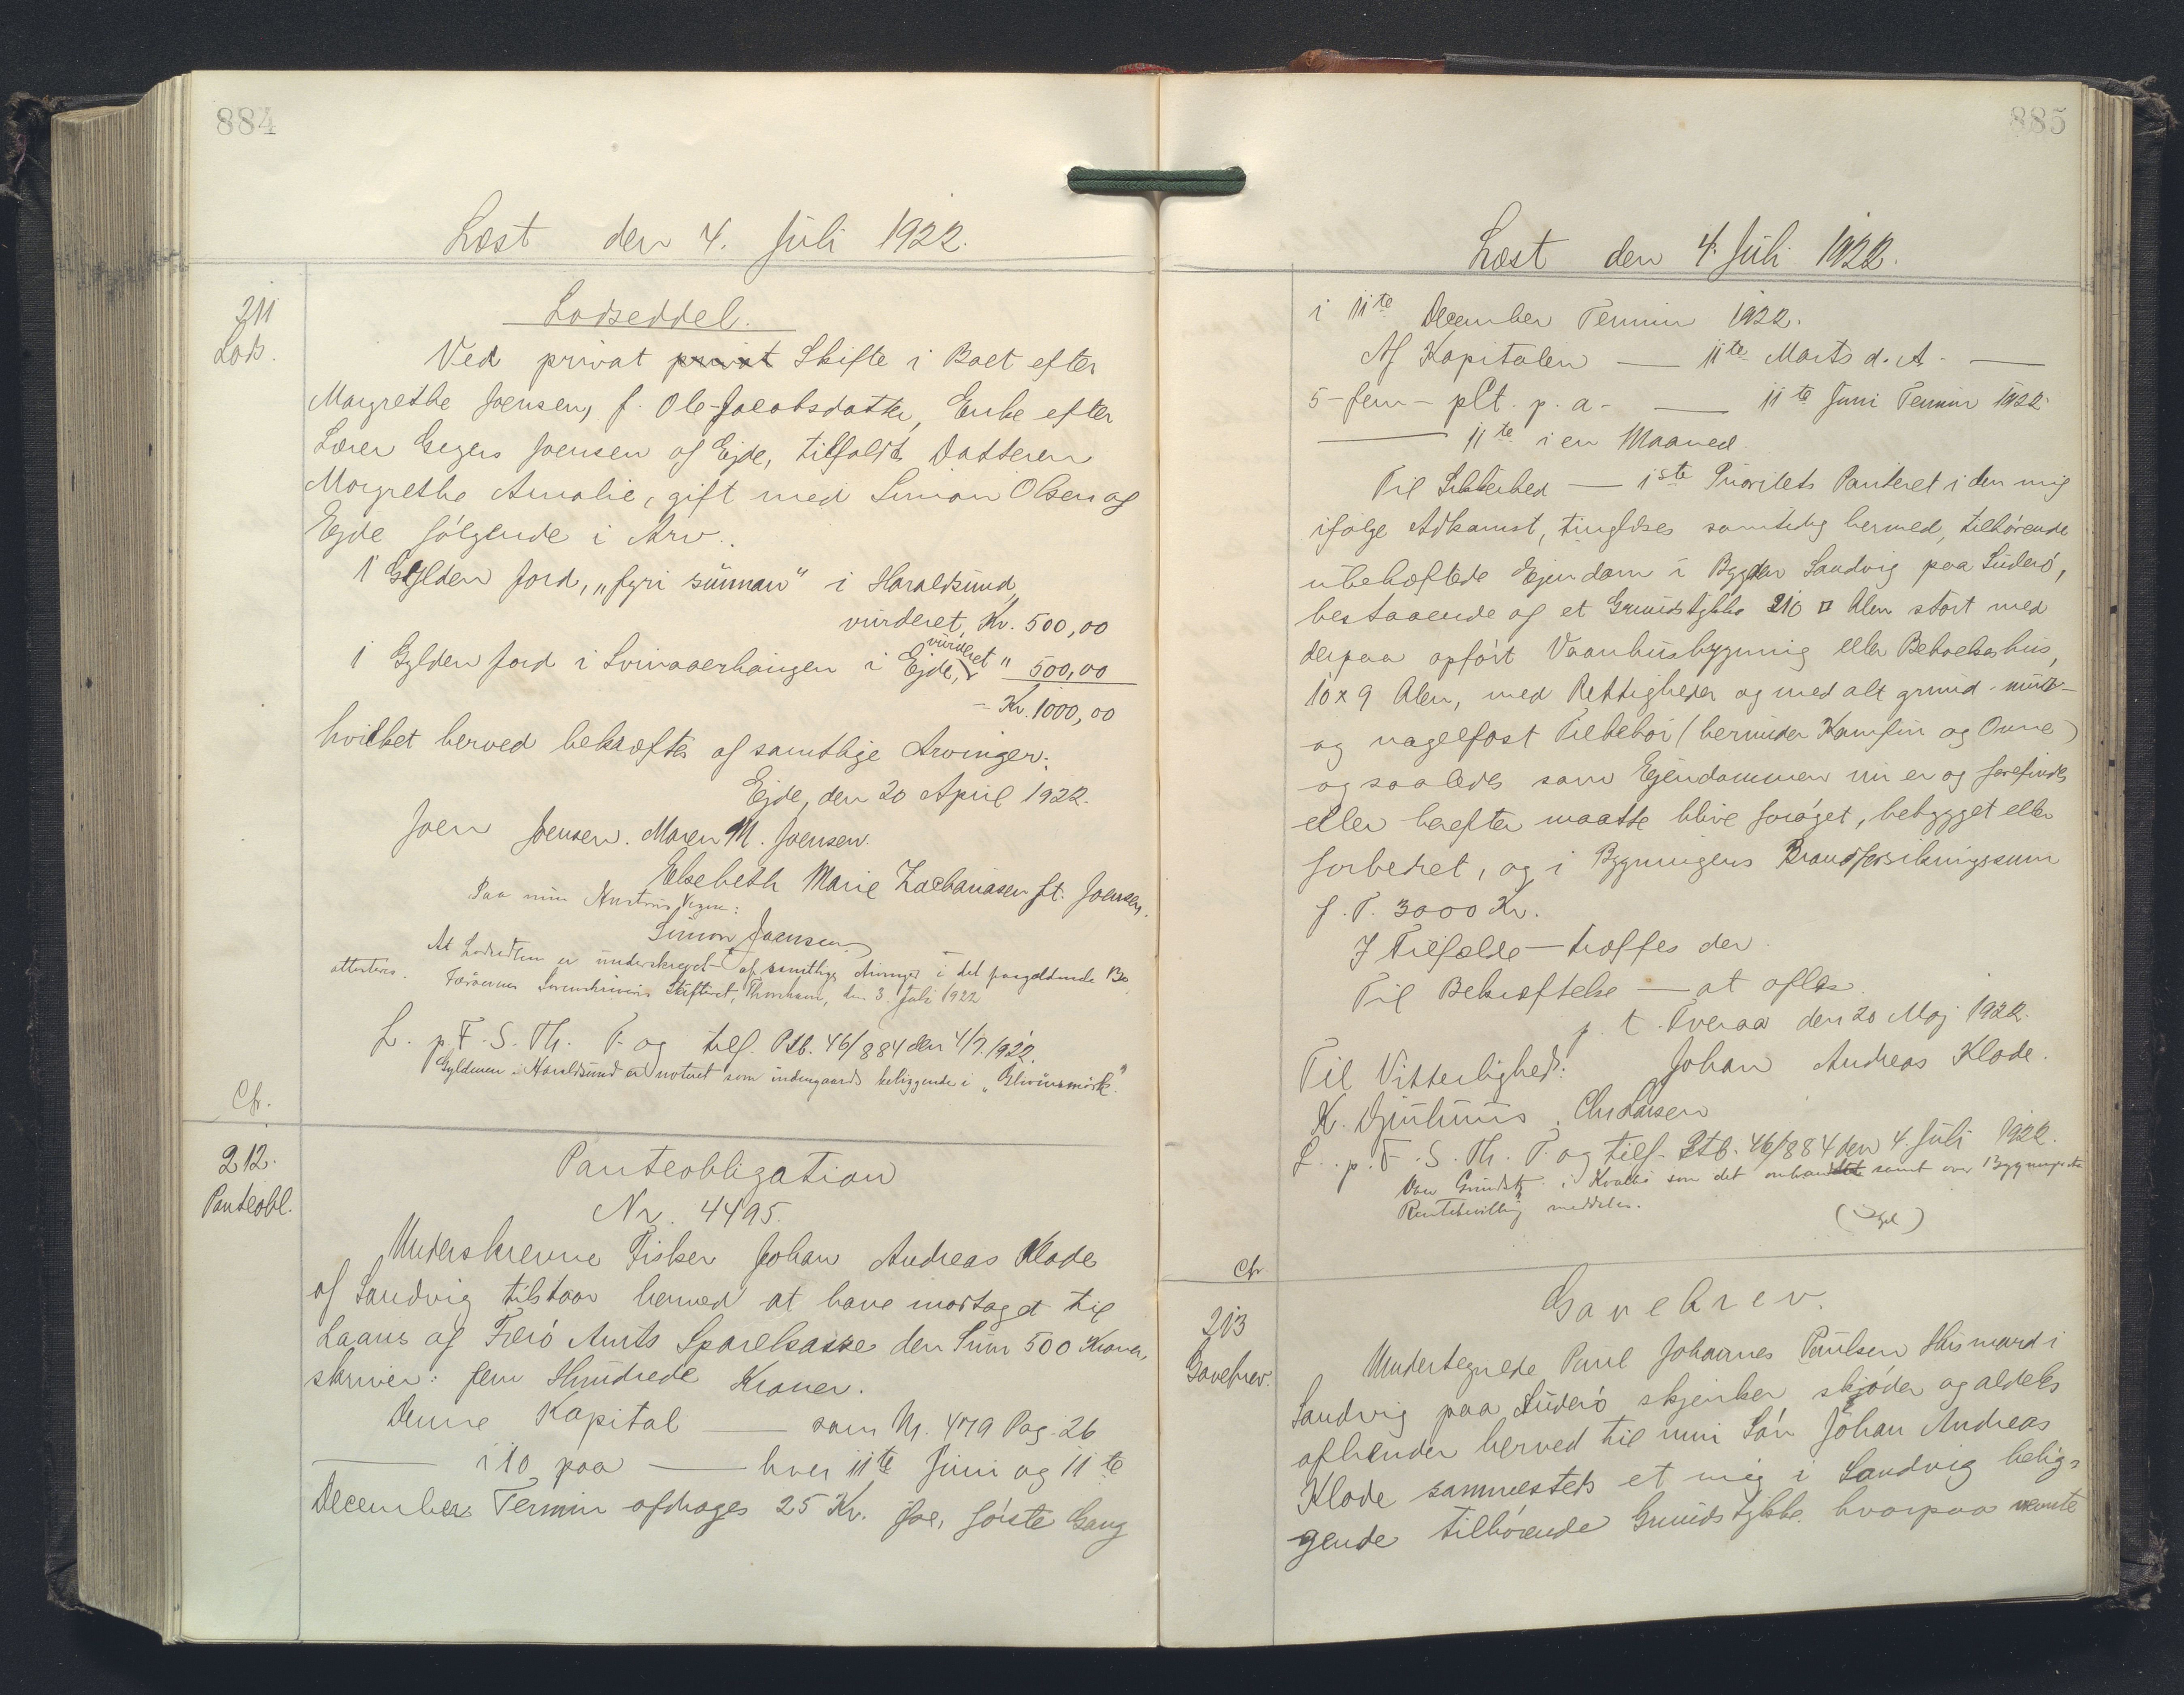 884
Læst den 4. Juli 1922.
211
Lods.
Lodseddel.
Ved privat privat Skifte i Boet efter
Margrethe Joensen, f. Ole-Jacobsdatter, Enke efter
Lærer Gregers Joensen af Ejde, tilfaldt Datteren
Margrethe Amalie, gift med Simon Olsen af
Ejde følgende i Arv:
1 Gylden Jord, "fyri sunnan" i Haraldsund,
vurderet, Kr. 500,00
1 Gylden Jord i Svinaaerhaugen i Ejde, vurderet " 500,00
- Kr. 1000,00
hvilket herved bekræftes af samtlige Arvinger:
Ejde, den 20 April 1922.
Joen Joensen. Maren M. Joensen.
Elsebeth Marie Zachariasen ft. Joensen.
Paa min Hustrus Vegne:
Simon Joensen
At Lodsedlen er underskrevet af samtlige Arvinger i det paagældende Bo
attesteres. Færøernes Sorenskriveris Skifteret, Thorshavn, den 3. Juli 1922
L. p. F. S. Th. T. og tilf. Ptb. 46/884 den 4/7. 1922.
Gyldenen i Haraldsund er noteret som indengaards beliggende i
Ch.
212.
Panteobl.
Panteobligation
Nr. 4495.
Underskrevne Fisker Johan Andreas Klade
af Sandvig tilstaar herved at have modtaget til
Laans af Færø Amts Sparekasse den Sum 500 Kroner,
skriver: fem Hundrede Kroner.
Denne Kapital — som Nr. 479 Pag. 26
— i 10 paa — hver 11te Juni og 11te
December Termin afdrages 25 Kr. første Gang
885
Læst den 4. Juli 1922.
i 11te December Termin 1922.
Af Kapitalen — 11te Marts d. A. —
5 - fem - pCt. p. a. — 11te Juni Termin 1922
— 11te i en Maaned.
Til Sikkerhed — 1ste Prioritets Panteret i den mig
ifølge Adkomst, tinglæses samtidig hermed, tilhørende
ubehæftede Ejendom i Bygden Sandvig paa Suderø,
bestaaende af et Grundstykke 210 □ Alen stort med
derpaa opført Vaanhusbygning eller Beboelseshus,
10 x 9 Alen, med Rettigheder og med alt grund- mur-
og nagelfast Tilbehør (herunder Komfur og Ovne)
og saaledes som Ejendommen nu er og forefindes
eller herefter maatte blive forøget, bebygget eller
forbedret, og i Bygningens Brandforsikringssum
p. T. 3000 Kr.
I Tilfælde — træffes der
Til Bekræftelse — at aflæs.
p. t. Tveraa den 20 Maj 1922.
Til Vitterlighed: Johan Andreas Klade.
K. Djurhuus. Chr Larsen
L. p. F. S. Th. T. og tilf. Ptb. 46/884 den 4. Juli 1922.
som det samt over
meddeles.
Ch.
213
Gavebrev.
Gavebrev.
Undertegnede Poul Johannes Poulsen Husmand i
Sandvig paa Suderø skjenker skjøder og aldeles
afhænder herved til min Søn Johan Andreas
Klade sammesteds et mig i Sandvig belig-
gende tilhørende Grundstykke hvorpaa nævnte